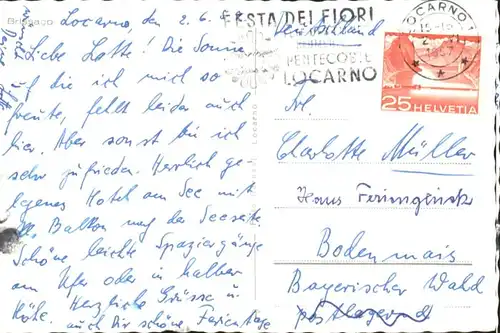 Brissago
Locarno, den 2. 6.
Liebe Lotte! Die Sonne,
auf die ich mich so
freute, fehlt leider auch
hier. Aber sonst bin ich
sehr zufrieden. Herrlich ge-
legenes Hotel am See mit
Balkon nach der Seeseite
Schöne leichte Spaziergänge
am Ufer oder in halber
Höhe. Herzliche Grüsse u.
auch Dir schöne Ferientage
Locarno
FESTA DEI FIORI
PENTECOSTE
LOCARNO
LOCARNO 1
15-18
1957
25 HELVETIA
Deutschland
Frl.
Charlotte Müller
Haus
Bodenmais
Bayerischer Wald
postlagernd